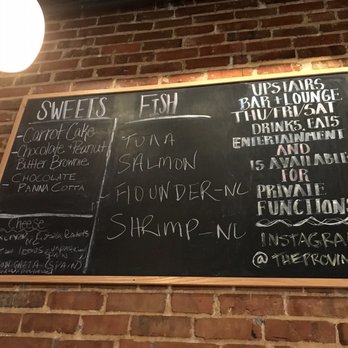 SWEETS
- Carrot Cake
- Chocolate + Peanut
Butter Brownie
- CHOCOLATE
PANNA COTTA
Cheese
(SPAIN)
FISH
TUNA
SALMON
FLOUNDER-NC
SHRIMP-NC
UPSTAIRS
BAR + LOUNGE
THU/FRI/SAT
DRINKS, EATS
ENTERTAINMENT
AND
IS AVAILABLE
FOR
PRIVATE
FUNCTIONS
INSTAGRAM
@THEPROVIN